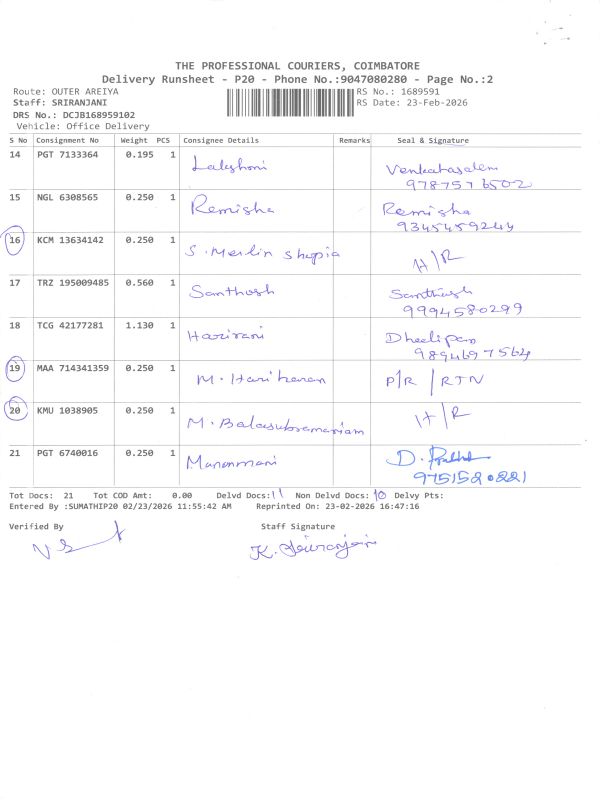 THE PROFESSIONAL COURIERS, COIMBATORE
Delivery Runsheet - P20 - Phone No.:9047080280 - Page No.:2
Route: OUTER AREIYA RS No.: 1689591
Staff: SRIRANJANI RS Date: 23-Feb-2026
DRS No.: DCJB168959102
Vehicle: Office Delivery
S No Consignment No Weight PCS Consignee Details Remarks Seal & Signature
14 PGT 7133364 0.195 1 Lakshmi Venkatasalem
9787576502
15 NGL 6308565 0.250 1 Remisha Remisha
9345459244
16 KCM 13634142 0.250 1 S. Merlin Shapia H/R
17 TRZ 195009485 0.560 1 Santhosh Santhosh
9994580299
18 TCG 42177281 1.130 1 Harirani Dheelipan
9894697564
19 MAA 714341359 0.250 1 M. Hariharan P/R / RTN
20 KMU 1038905 0.250 1 M. Balasubramaniam H/R
21 PGT 6740016 0.250 1 Manonmani D.
9751520221
Tot Docs: 21 Tot COD Amt: 0.00 Delvd Docs: 11 Non Delvd Docs: 10 Delvy Pts:
Entered By :SUMATHIP20 02/23/2026 11:55:42 AM Reprinted On: 23-02-2026 16:47:16
Verified By Staff Signature
K. Sriranjani